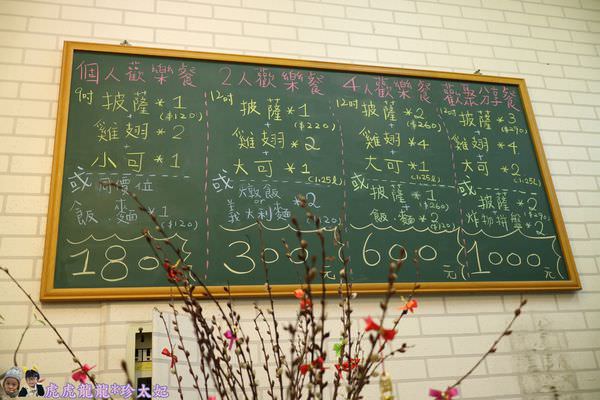 個人歡樂餐
9吋 披薩*1
($120)
+
雞翅*2
+
小可*1
或 同價位
飯.麵*1
($120)
180元
2人歡樂餐
12吋 披薩*1
($220)
+
雞翅*2
+
大可*1
(1.25L)
或 燉飯
or *2
義大利麵
300元
4人歡樂餐
12吋 披薩*2
($260)
+
雞翅*4
+
大可*1
(1.25L)
或 披薩*1
+($260)
飯.麵*2
($120)
600元
歡聚分享餐
12吋 披薩*3
($290)
+
雞翅*4
+
大可*2
(1.25L)
或 披薩*2
+($290)
炸物拼盤*2
1000元
虎虎龍龍&珍太妃